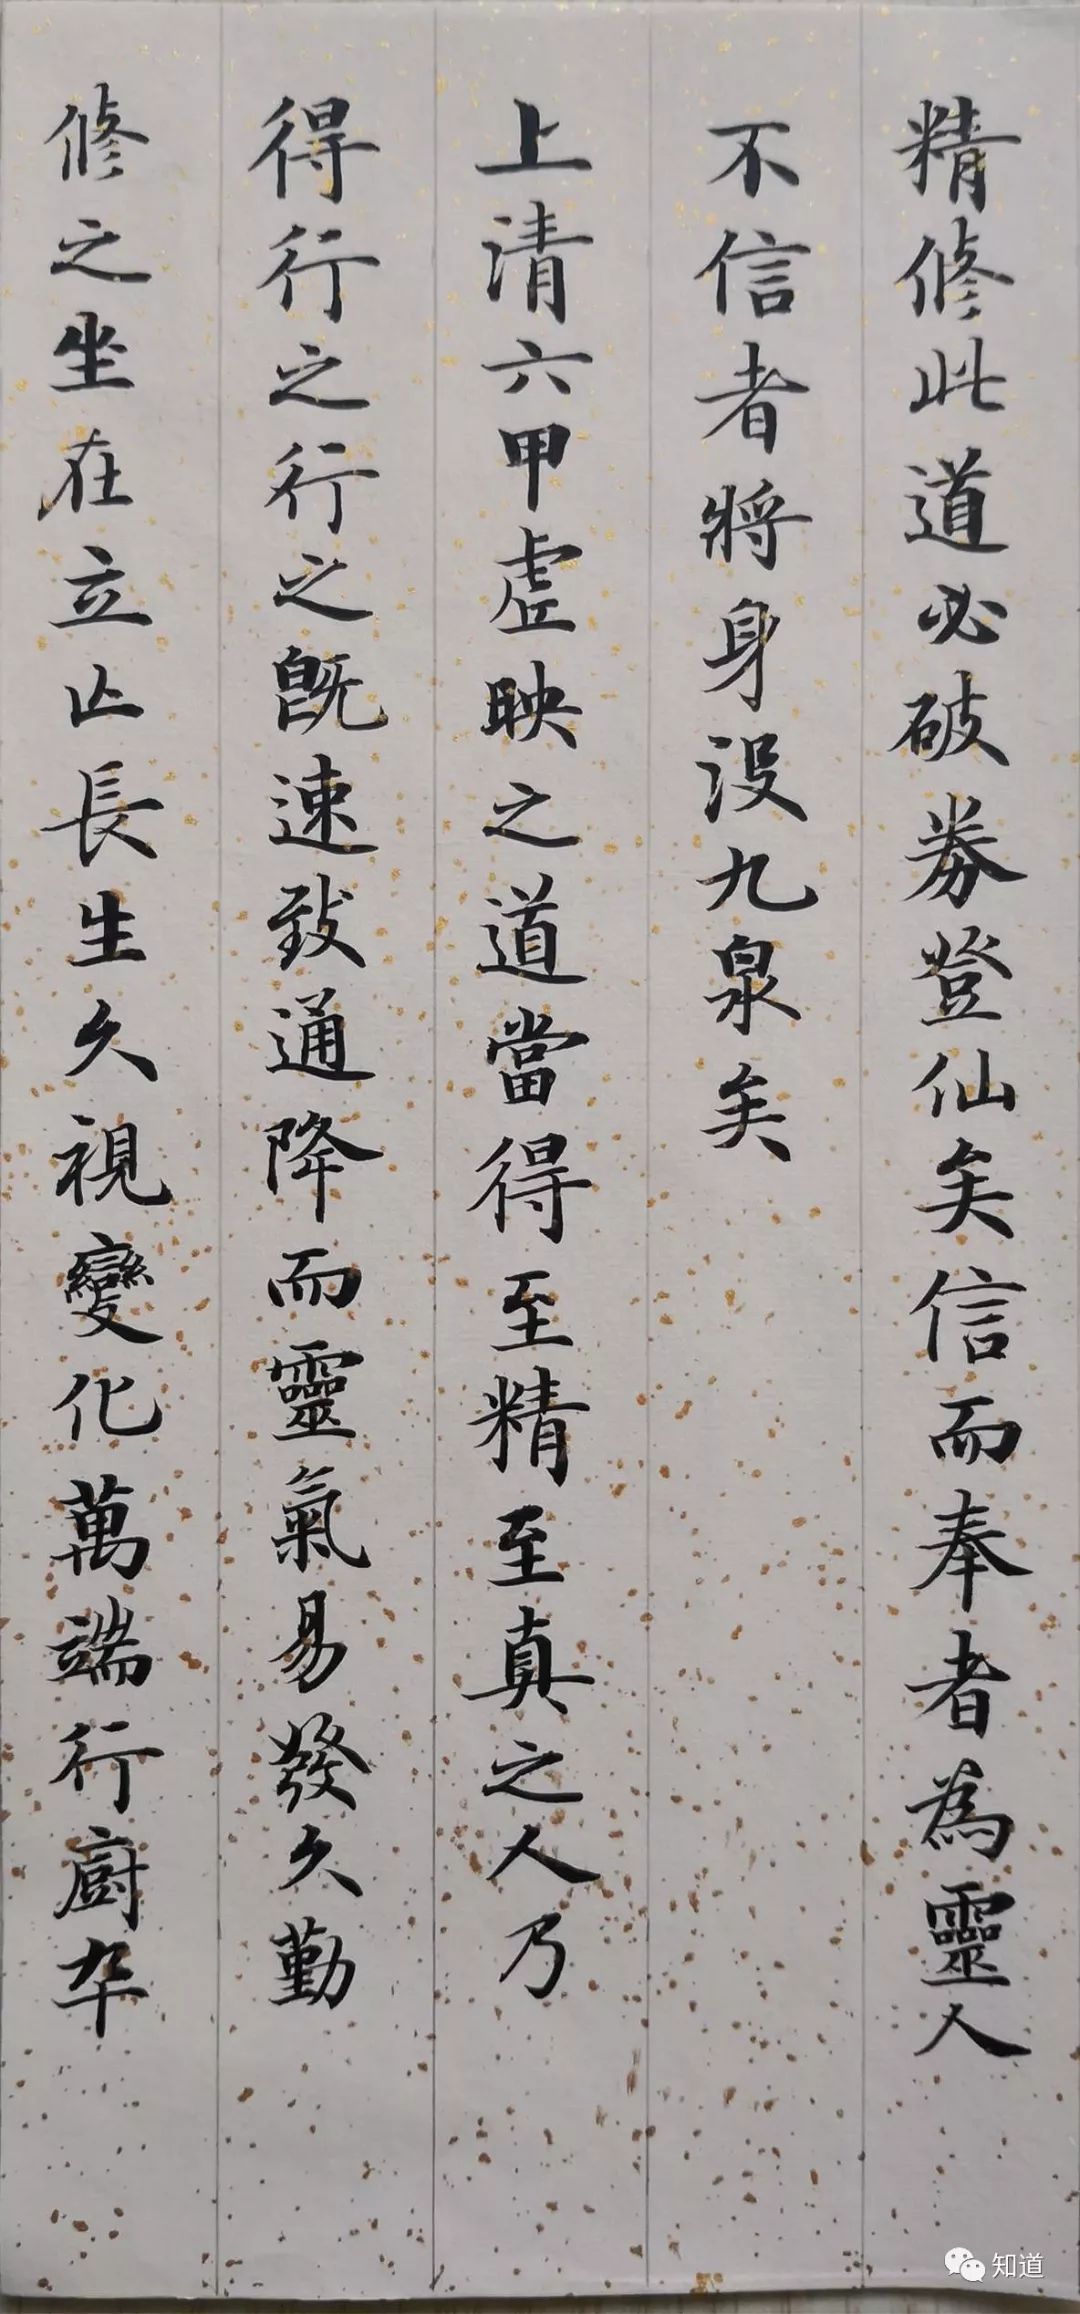 精修此道必破券登仙矣信而奉者為靈人
不信者將身没九泉矣
上清六甲虛映之道當得至精至真之人乃
得行之行之既速致通降而靈氣易發久勤
修之坐在立亡長生久視變化萬端行廚卒
知道